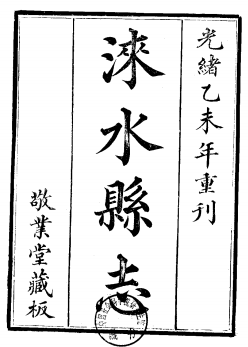 光緒乙未年重刊
淶水縣志
敬業堂藏板